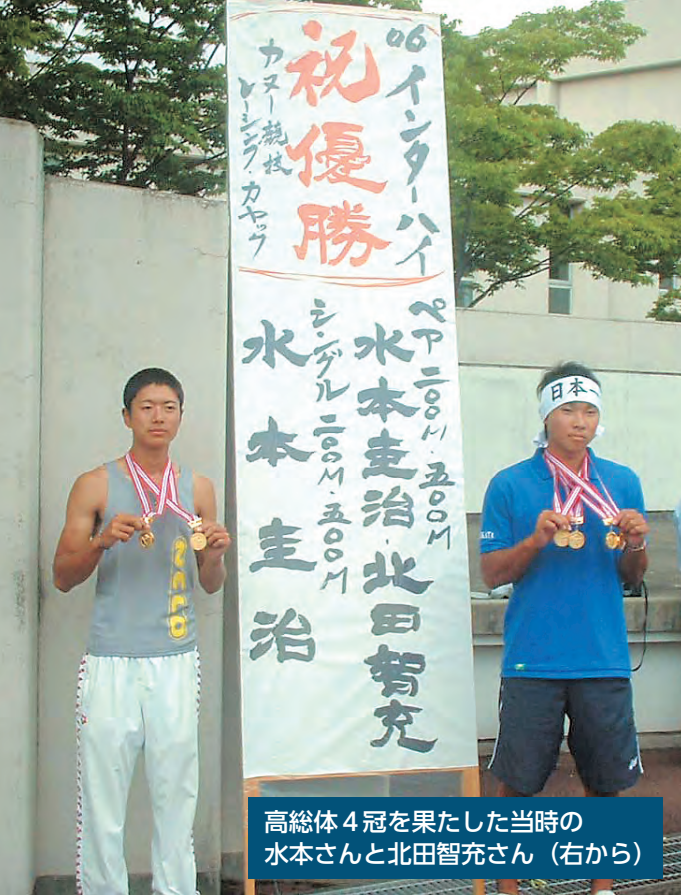 '06 インターハイ
祝優勝
カヌー競技
レーシング・カヤック
ペア 二〇〇M・五〇〇M
水本圭治・北田智充
シングル 二〇〇M・五〇〇M
水本圭治
日本一
高総体４冠を果たした当時の
水本さんと北田智充さん（右から）